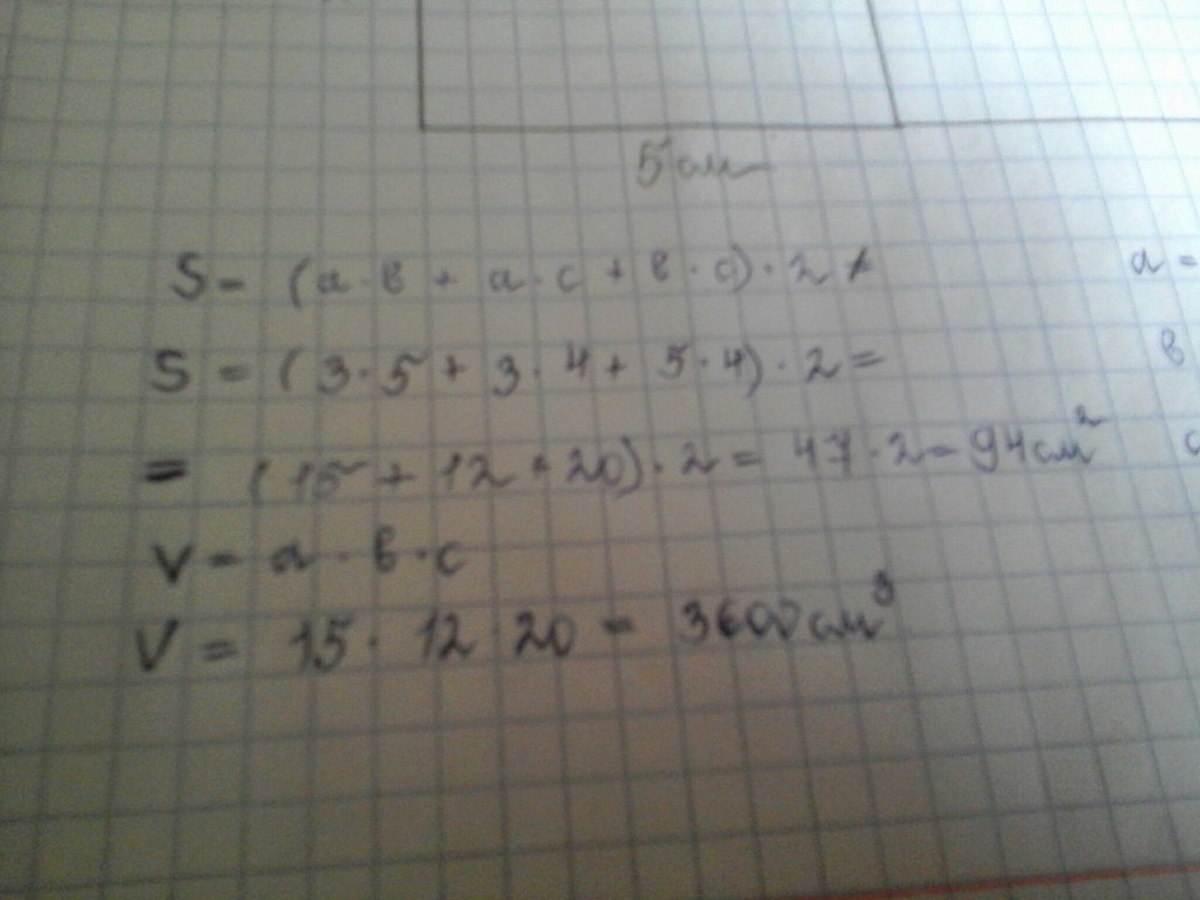 5 см
S = (a · в + a · c + в · c) · 2
a =
S = (3 · 5 + 3 · 4 + 5 · 4) · 2 =
в
= (15 + 12 + 20) · 2 = 47 · 2 = 94 см²
c
V = a · в · c
V = 15 · 12 · 20 = 3600 см³